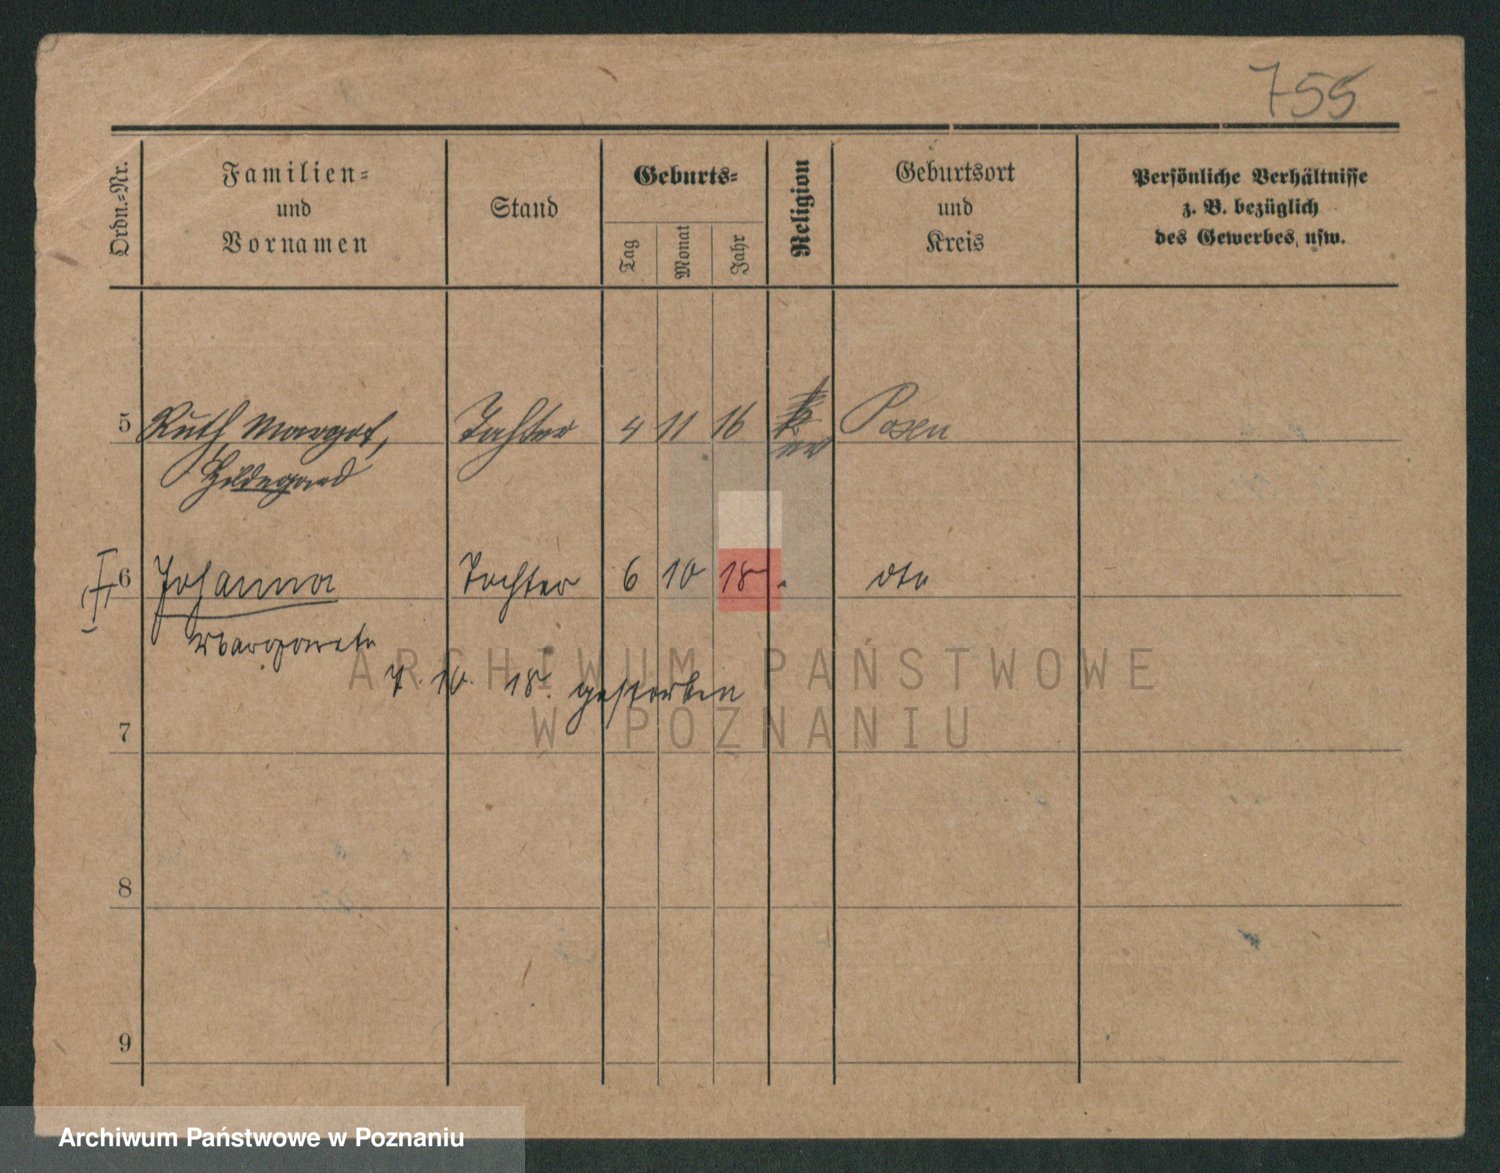 755
Ordn.-Nr.
Familien-
und
Vornamen
Stand
Geburts-
Tag
Monat
Jahr
Religion
Geburtsort
und
Kreis
Persönliche Verhältnisse
z. B. bezüglich
des Gewerbes, usw.
5 Ruth, Margot, Tochter 4 11 16 k ev Posen
Hildegard
6 Johanna Tochter 6 10 18 dto
Margarete
7. 10. 18. gestorben
7
8
9
ARCHIWUM PAŃSTWOWE
W POZNANIU
Archiwum Państwowe w Poznaniu